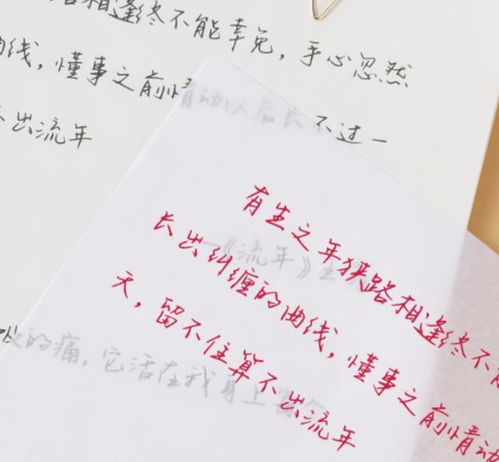 路相逢终不能幸免，手心忽然
曲线，懂事之前情动以后长不过一
不出流年
有生之年狭路相逢终不能
长出纠缠的曲线，懂事之前情动
天，留不住算不出流年
《流年》
的痛，它活在我身上